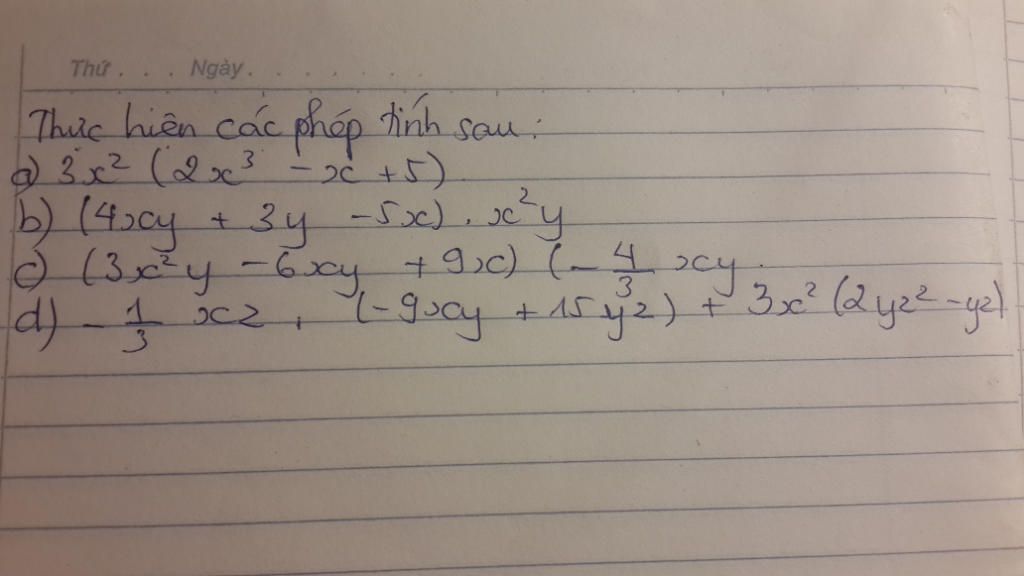 Thứ . . . Ngày . . . . . . . .
Thực hiện các phép tính sau:
a) 3x² (2x³ - x + 5)
b) (4xy + 3y - 5x) . x²y
c) (3x²y - 6xy + 9x) (- 4/3 xy
d) - 1/3 xz . (-9xy + 15yz) + 3x² (2yz² - yz)